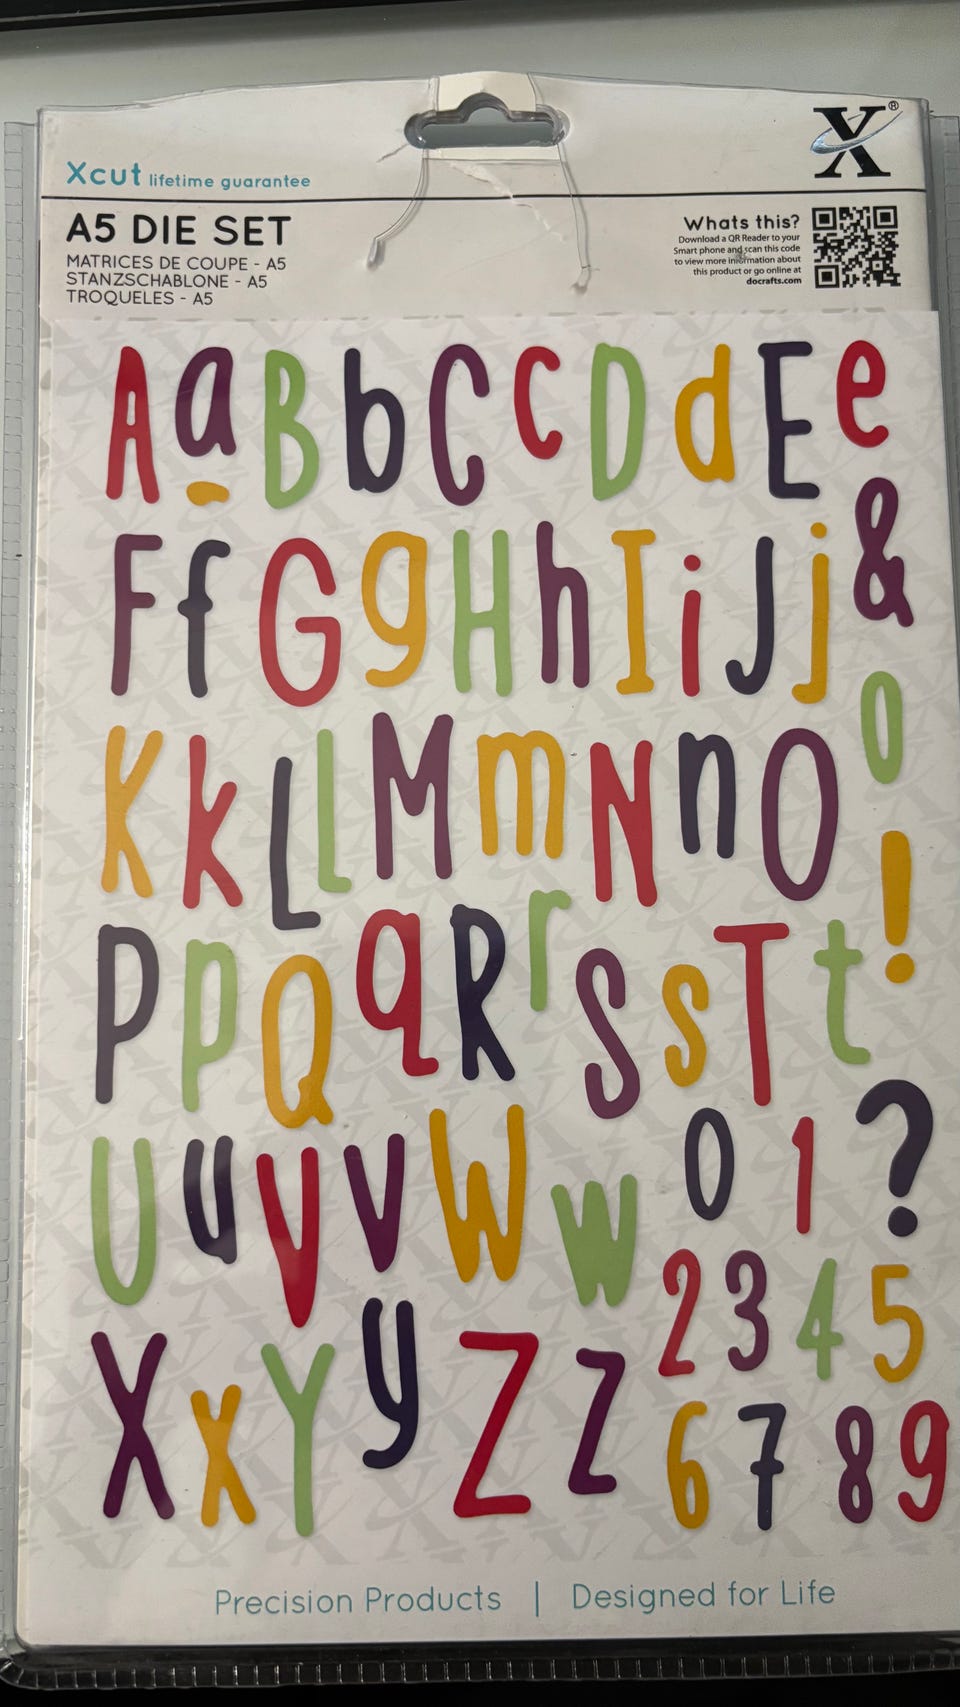 X®
Xcut lifetime guarantee
A5 DIE SET
MATRICES DE COUPE - A5
STANZSCHABLONE - A5
TROQUELES - A5
Whats this?
Download a QR Reader to your
Smart phone and scan this code
to view more information about
this product or go online at
docrafts.com
A a B b C c D d E e
F f G g H h I i J j &
K k L l M m N n O o
P p Q q R r S s T t !
U u V v W w 0 1 ?
2 3 4 5
X x Y y Z z 6 7 8 9
Precision Products | Designed for Life